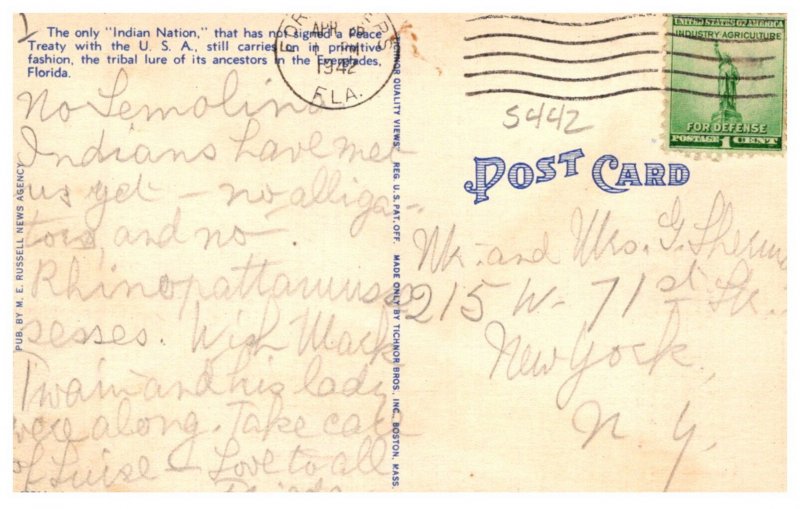 The only "Indian Nation," that has not signed a Peace
Treaty with the U. S. A., still carries on in primitive
fashion, the tribal lure of its ancestors in the Everglades,
Florida.
No Semolina
Indians have met
us yet - no alliga-
tors, and no
Rhinopattamusses
sesses. Wish Mark
Twain and his lady
were along. Take care
of Luise - Love to all
PUB. BY M. E. RUSSELL NEWS AGENCY
TICHNOR QUALITY VIEWS. REG. U. S. PAT. OFF. MADE ONLY BY TICHNOR BROS., INC., BOSTON, MASS.
APR
1942
FLA.
UNITED STATES OF AMERICA
INDUSTRY AGRICULTURE
FOR DEFENSE
POSTAGE 1 CENT
5442
POST CARD
Mr. and Mrs. G.
215 W- 71st St.
New York,
N. Y.